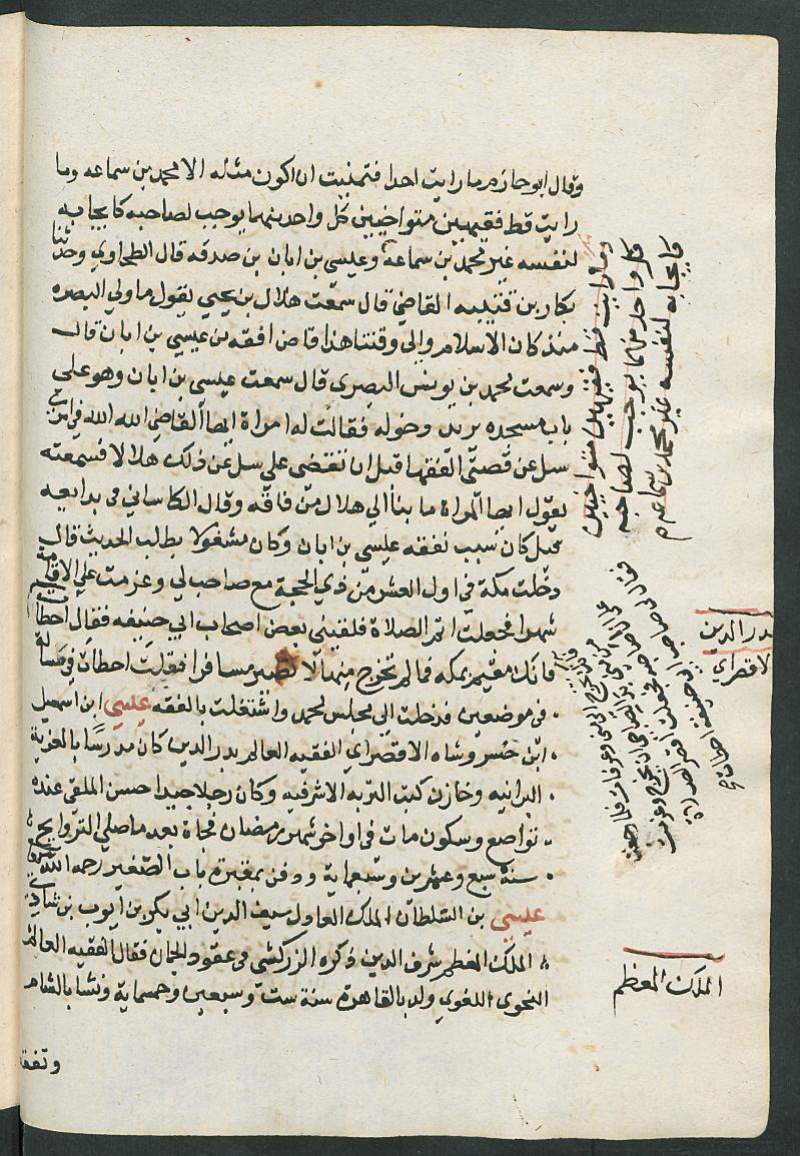 وقال ابو حازم ما رايت احدا فتمنيت ان اكون مثله الا محمد بن سماعه وما
رايت قط فقيهين متواخيين كل واحد منهما يوجب لصاحبه كايجابه
لنفسه غير محمد بن سماعة وعيسى بن ابان بن صدقه قال الطحاوي وحدثنا
بكار بن قتيبه القاضي قال سمعت هلال بن يحيى يقول ما ولي البصره
منذ كان الاسلام والى وقتنا هذا قاض افقه من عيسى بن ابان قال
وسمعت محمد بن يونس البصرى قال سمعت عيسى بن ابان وهو على
باب مسجده يريد دخوله فقالت له امراة ايها القاضي الله الله في امرى
سل عن قصتى الفقها قبل ان تقضى علي سل عن ذلك هلالا فسمعته
يقول ايها المراة ما بنا الي هلال من فاقه وقال الكاساني في بدايعه
قيل كان سبب تفقه عيسى بن ابان وكان مشغولا بطلب الحديث قال
دخلت مكة في اول العشر من ذي الحجة مع صاحب لي وعزمت على الاقامة
شهرا فجعلت اتم الصلاة فلقيني بعض اصحاب ابي حنيفه فقال اخطات
فانك مقيم بمكه فما لم تخرج منها لا تصير مسافرا فقلت اخطات في مسالة
في موضعين فدخلت الي مجلس محمد واشتغلت بالفقه عيسى ابن اسمعيل
ابن خسروشاه الاقصراي الفقيه العالم بدر الدين كان مدرسا بالعزية
البرانيه وخازن كتب التربه الاشرفيه وكان رجلا جيدا حسن الملقى عنده
تواضع وسكون مات في اواخر شهر رمضان فجاة بعد ما صلي التروايح
سنة سبع وعشرين وسبعماية ودفن بمقبرة باب الصغير رحمه الله
عيسى بن السلطان الملك العادل سيف الدين ابي بكر بن ايوب بن شادي
الملك المعظم شرف الدين ذكره الزركشي في عقود الجمان فقال الفقيه العالم
النحوى اللغوي ولد بالقاهرة سنة ست وسبعين وخمسماية ونشا بالشام
وتفقه
وما رايت قط فقيهين متواخيين
كل واحد منهما يوجب لصاحبه
كايجابه لنفسه غير محمد بن سماعه
بدر الدين
الاقصراي
الملك المعظم